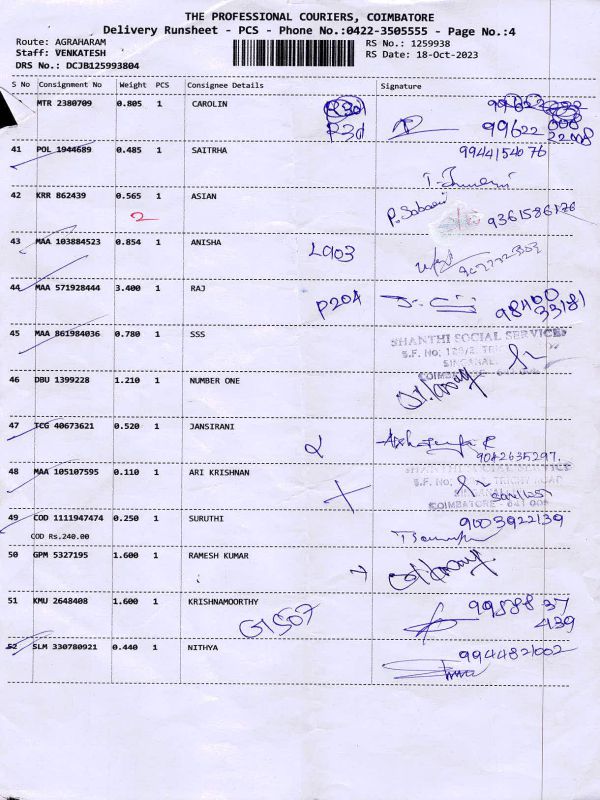 THE PROFESSIONAL COURIERS, COIMBATORE
Delivery Runsheet - PCS - Phone No.:0422-3505555 - Page No.:4
Route: AGRAHARAM
RS No.: 1259938
Staff: VENKATESH
RS Date: 18-Oct-2023
DRS No.: DCJB125993804
S No Consignment No Weight PCS Consignee Details Signature
MTR 2380709 0.805 1 CAROLIN R3d
R3d 99622 008
22008
41 POL 1944689 0.485 1 SAITRHA 9944154076
42 KRR 862439 0.565 1 ASIAN
2 9361586176
43 MAA 103884523 0.854 1 ANISHA L903
44 MAA 571928444 3.400 1 RAJ P204 98400
33181
45 MAA 861984036 0.780 1 SSS SHANTHI SOCIAL SERVICES
46 DBU 1399228 1.210 1 NUMBER ONE
47 TCG 40673621 0.520 1 JANSIRANI
9042635297.
48 MAA 105107595 0.110 1 ARI KRISHNAN SHANTHI SOCIAL SERVICE
COIMBATORE - 641 005
49 COD 1111947474 0.250 1 SURUTHI 9003922139
COD Rs.240.00
50 GPM 5327195 1.600 1 RAMESH KUMAR
51 KMU 2648408 1.600 1 KRISHNAMOORTHY G1507 99588 37
439
52 SLM 330780921 0.440 1 NITHYA 9944821002